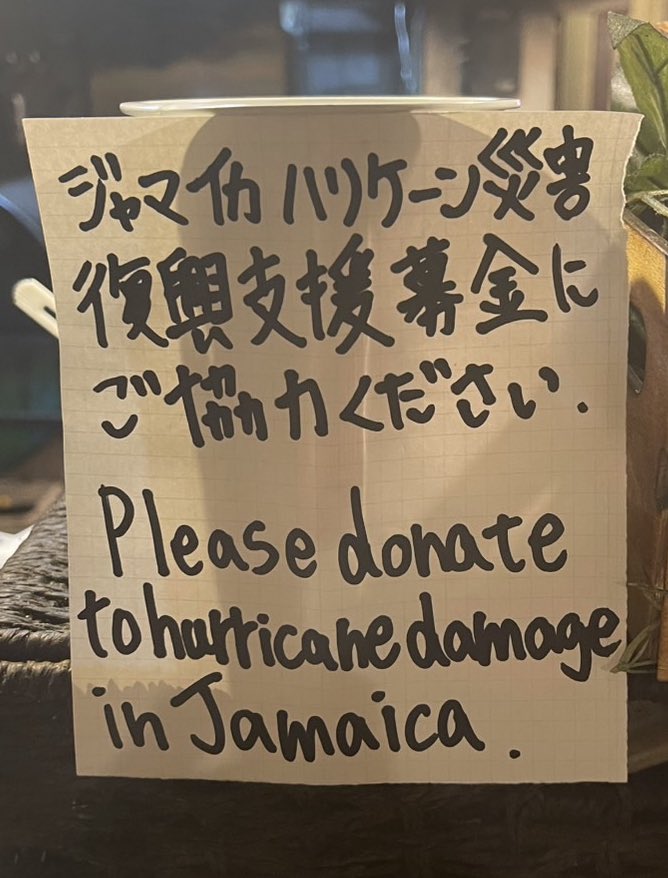 ジャマイカ ハリケーン災害
復興支援募金に
ご協力ください.
Please donate
to hurricane damage
in Jamaica.